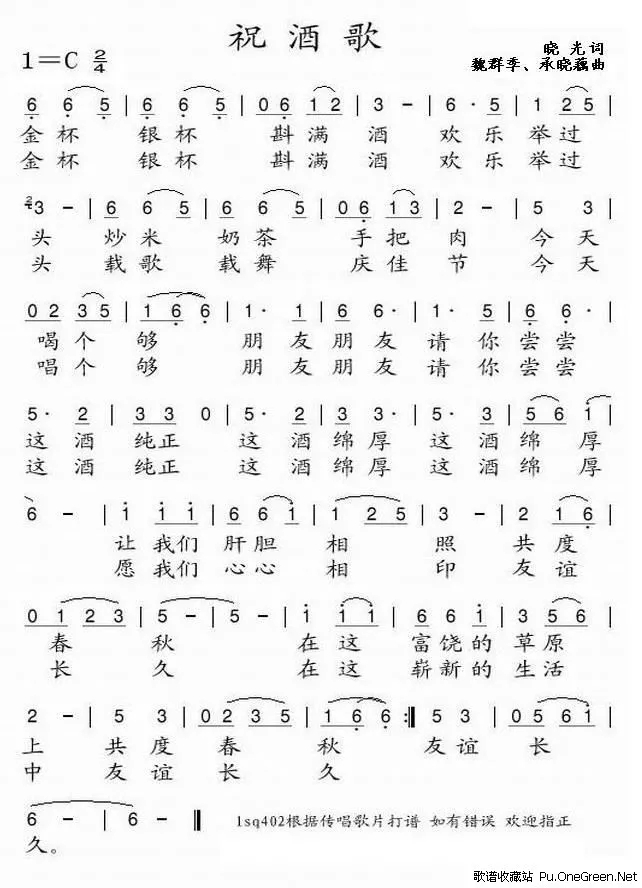 祝酒歌
1=C 2/4
晓光词
魏群季、承晓藕曲
6 6 5 | 6 6 5 | 0 6 1 2 | 3 - | 6· 5 | 1 2 5 |
金杯 银杯 斟满 酒 欢乐 举过
金杯 银杯 斟满 酒 欢乐 举过
2/4 3 - | 6 6 5 | 6 6 5 | 0 6 1 3 | 2 - | 5 3 |
头 炒米 奶茶 手把 肉 今天
头 载歌 载舞 庆佳 节 今天
0 2 3 5 | 1 6 6 | 1· 1 | 6 6· | 1· 5 | 6 6· |
喝个 够 朋友 朋友 请你 尝尝
唱个 够 朋友 朋友 请你 尝尝
5· 2 | 3 3 0 | 5· 2 | 3 3· | 5· 3 | 5 6 1 |
这酒 纯正 这酒 绵厚 这酒 绵厚
这酒 纯正 这酒 绵厚 这酒 绵厚
6 - | 1 1 1 | 6 6 1 | 1 2 5 | 3 - | 2 1 6 |
让我们 肝胆 相 照 共度
愿我们 心心 相 印 友谊
0 1 2 3 | 5 - | 5 - | 1 1 1 | 6 6 1 | 5 3 5 |
春 秋 在这 富饶的 草原
长 久 在这 崭新的 生活
2 - | 5 3 | 0 2 3 5 | 1 6 6 :‖ 5 3 | 0 5 6 1 |
上 共度 春 秋 友谊 长
中 友谊 长 久
6 - | 6 - ‖ 1sq402根据传唱歌片打谱 如有错误 欢迎指正
久。
歌谱收藏站 Pu.OneGreen.Net